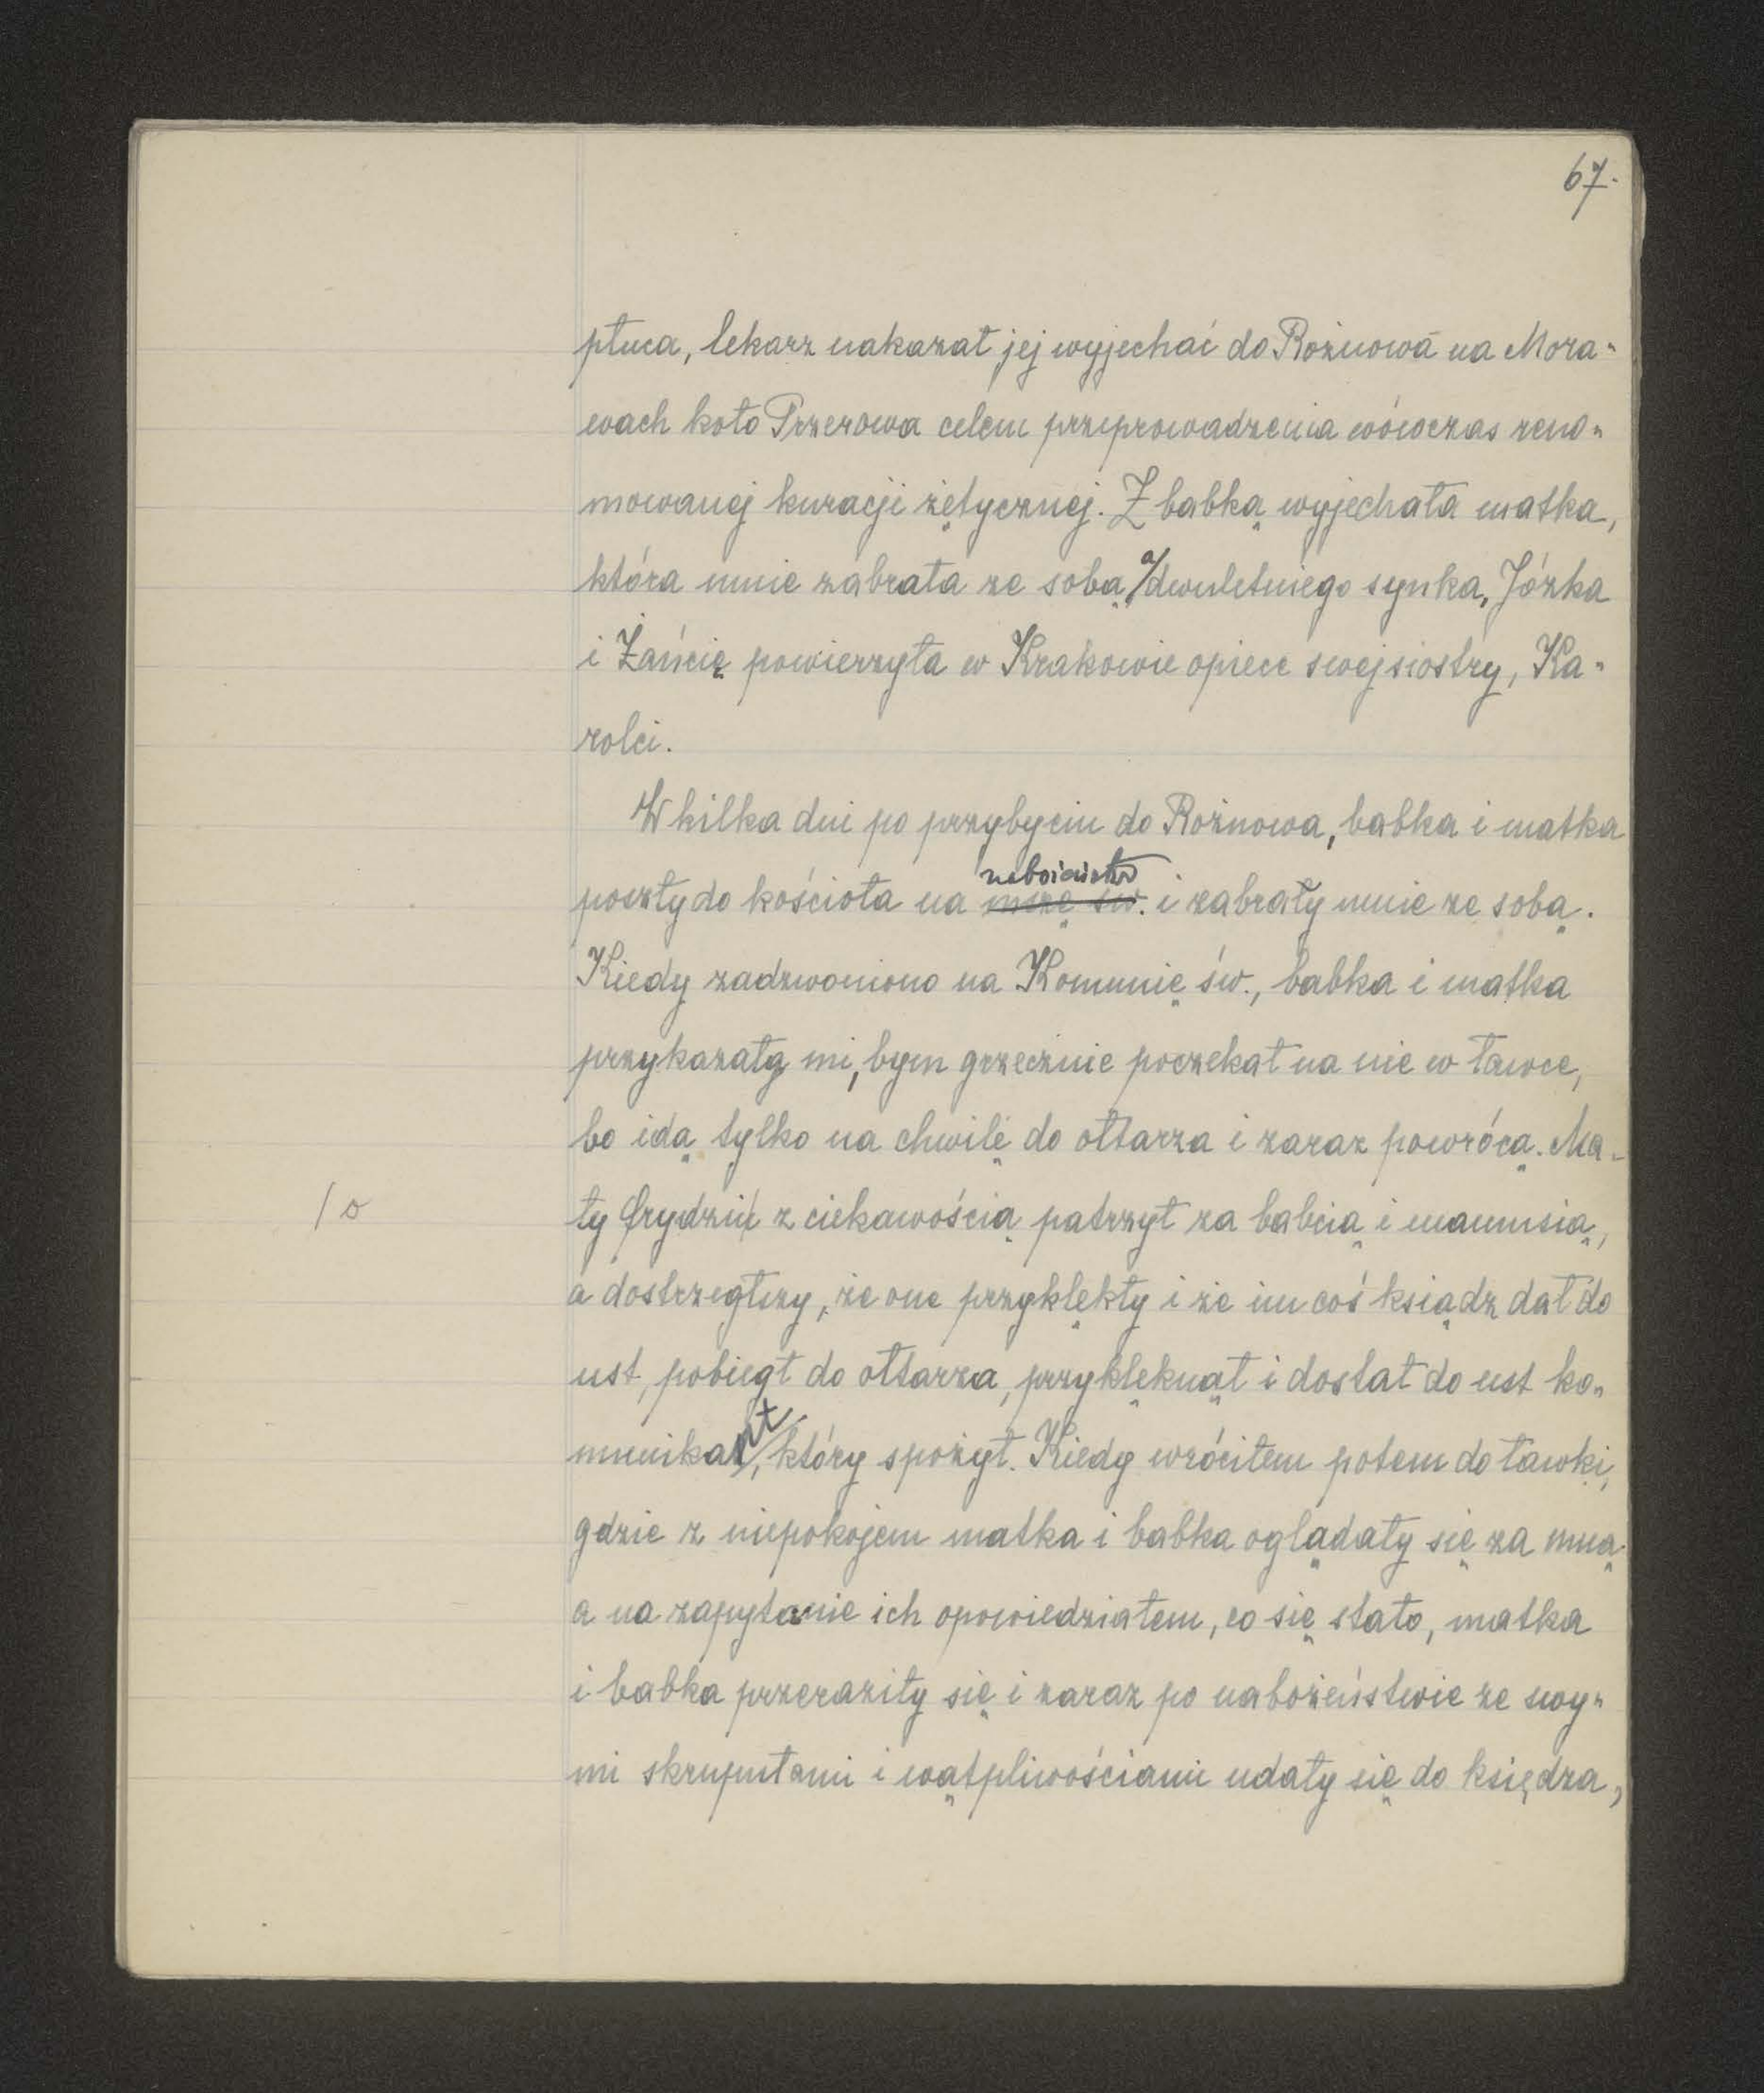 67.
płuca, lekarz nakazał jej wyjechać do Rożnowa na Mora-
wach koło Przerowa celem przeprowadzenia wówczas reno-
mowanej kuracji żętycznej. Z babką wyjechała matka,
która mnie zabrała ze sobą, a dwuletniego synka, Józka
i Żańcię powierzyła w Krakowie opiece swej siostry, Ka-
rolci.
W kilka dni po przybyciu do Rożnowa, babka i matka
nabożeństwo
poszły do kościoła na mszę św. i zabrały mnie ze sobą.
Kiedy zadzwoniono na Komunię św., babka i matka
przykazały mi, bym grzecznie poczekał na nie w ławce,
bo idą tylko na chwilę do ołtarza i zaraz powrócą. Ma-
/o
ły Frydziu z ciekawością patrzył za babcią i mamusią,
a dostrzegłszy, że one przyklękły i że im coś ksiądz dał do
ust, pobiegł do ołtarza, przyklęknął i dostał do ust ko-
munikant, który spożył. Kiedy wróciłem potem do ławki,
gdzie z niepokojem matka i babka oglądały się za mną
a na zapytanie ich opowiedziałem, co się stało, matka
i babka przeraziły się i zaraz po nabożeństwie ze swy-
mi skrupułami i wątpliwościami udały się do księdza,